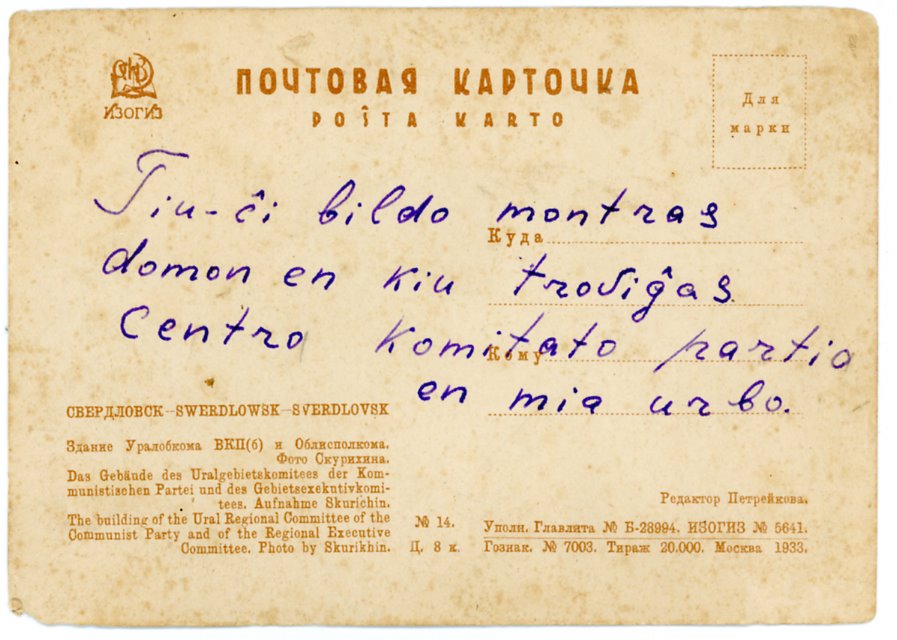 ИЗОГИЗ
ПОЧТОВАЯ КАРТОЧКА
POŜTA KARTO
Для
марки
Tiu-ĉi bildo montras
Куда
domon en kiu troviĝas
Centro Komitato partio
Кому
en mia urbo.
СВЕРДЛОВСК–SWERDLOWSK–SVERDLOVSK
Здание Уралобкома ВКП(б) и Облисполкома.
Фото Скурихина.
Das Gebäude des Uralgebietskomitees der Kom-
munistischen Partei und des Gebietsexekutivkomi-
tees. Aufnahme Skurichin.
The building of the Ural Regional Committee of the
Communist Party and of the Regional Executive
Committee. Photo by Skurikhin.
№ 14.
Д. 8 к.
Редактор Петрейкова.
Уполн. Главлита № Б-28994. ИЗОГИЗ № 5641.
Гознак. № 7003. Тираж 20.000. Москва 1933.